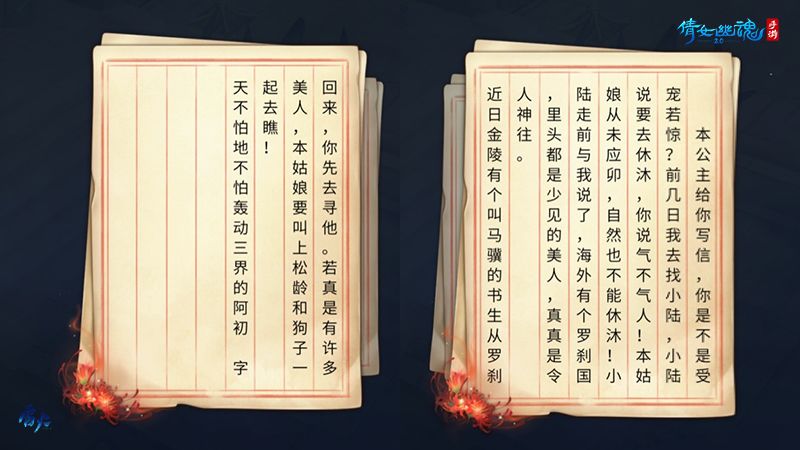 倩女幽魂
手游
2.0
本公主给你写信，你是不是受
宠若惊？前几日我去找小陆，小陆
说要去休沐，你说气不气人！本姑
娘从未应卯，自然也不能休沐！小
陆走前与我说了，海外有个罗刹国
，里头都是少见的美人，真真是令
人神往。
近日金陵有个叫马骥的书生从罗刹
回来，你先去寻他。若真是有许多
美人，本姑娘要叫上松龄和狗子一
起去瞧！
天不怕地不怕轰动三界的阿初　字